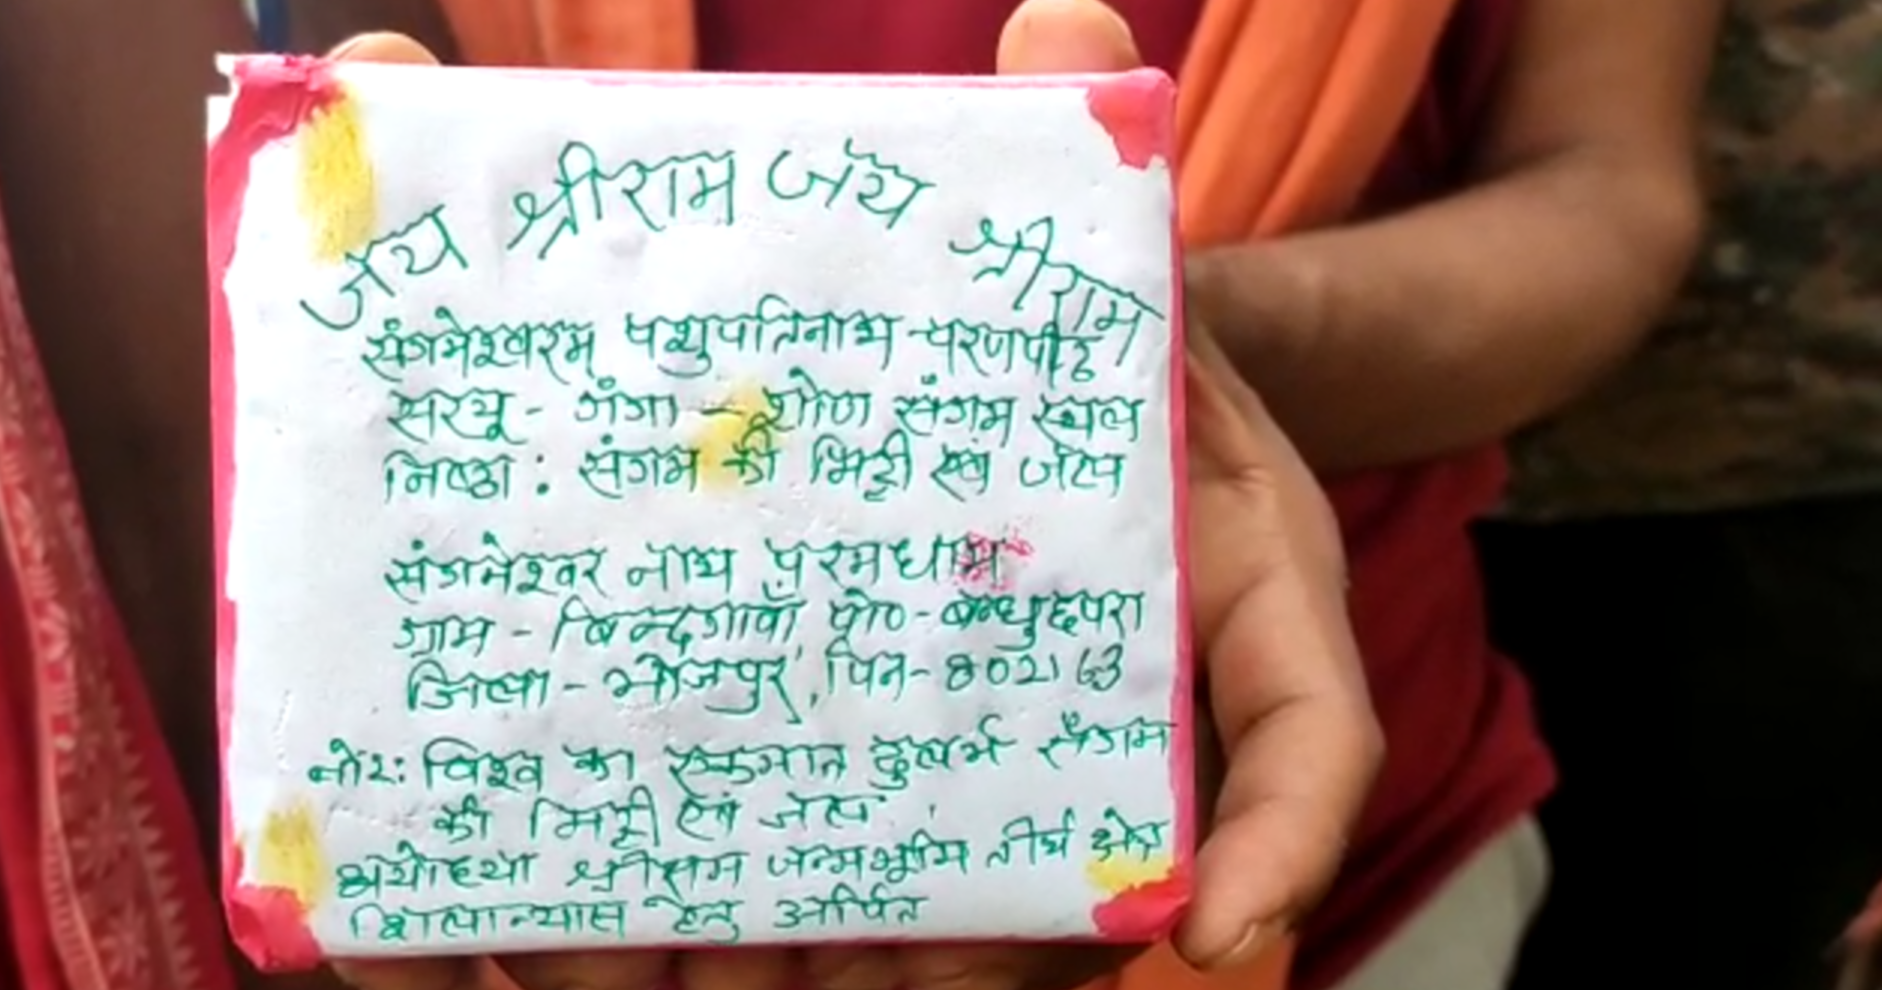 जय श्रीराम जय श्रीराम
संगमेश्वरम् पशुपतिनाथ चरणपीठ
सरयू - गंगा - शोण संगम स्थल
निष्ठा : संगम की मिट्टी एवं जल
संगमेश्वर नाथ परमधाम
ग्राम - बिन्दगावाँ, पो०-बन्धुछपरा
जिला - भोजपुर, पिन-802163
नोट: विश्व का एकमात्र दुर्लभ संगम
की मिट्टी एवं जल
अयोध्या श्रीराम जन्मभूमि तीर्थ क्षेत्र
शिलान्यास हेतु अर्पित